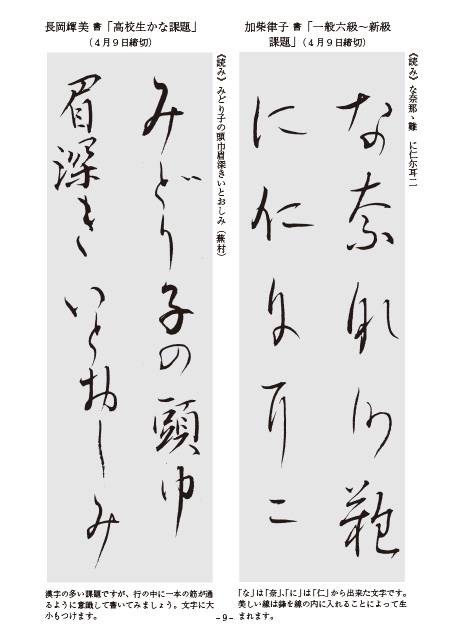 加柴律子 書「一般六級～新級
課題」（4月9日締切）
《読み》な奈那ゝ難　に仁尓耳二
な奈那
に仁尓耳二
「な」は「奈」、「に」は「仁」から出来た文字です。
美しい線は鋒を線の内に入れることによって生
まれます。
長岡輝美 書「高校生かな課題」
（4月9日締切）
《読み》みどり子の頭巾眉深きいとおしみ（蕪村）
みどり子の頭巾
眉深きいとおしみ
漢字の多い課題ですが、行の中に一本の筋が通
るように意識して書いてみましょう。文字に大
小もつけます。
-9-